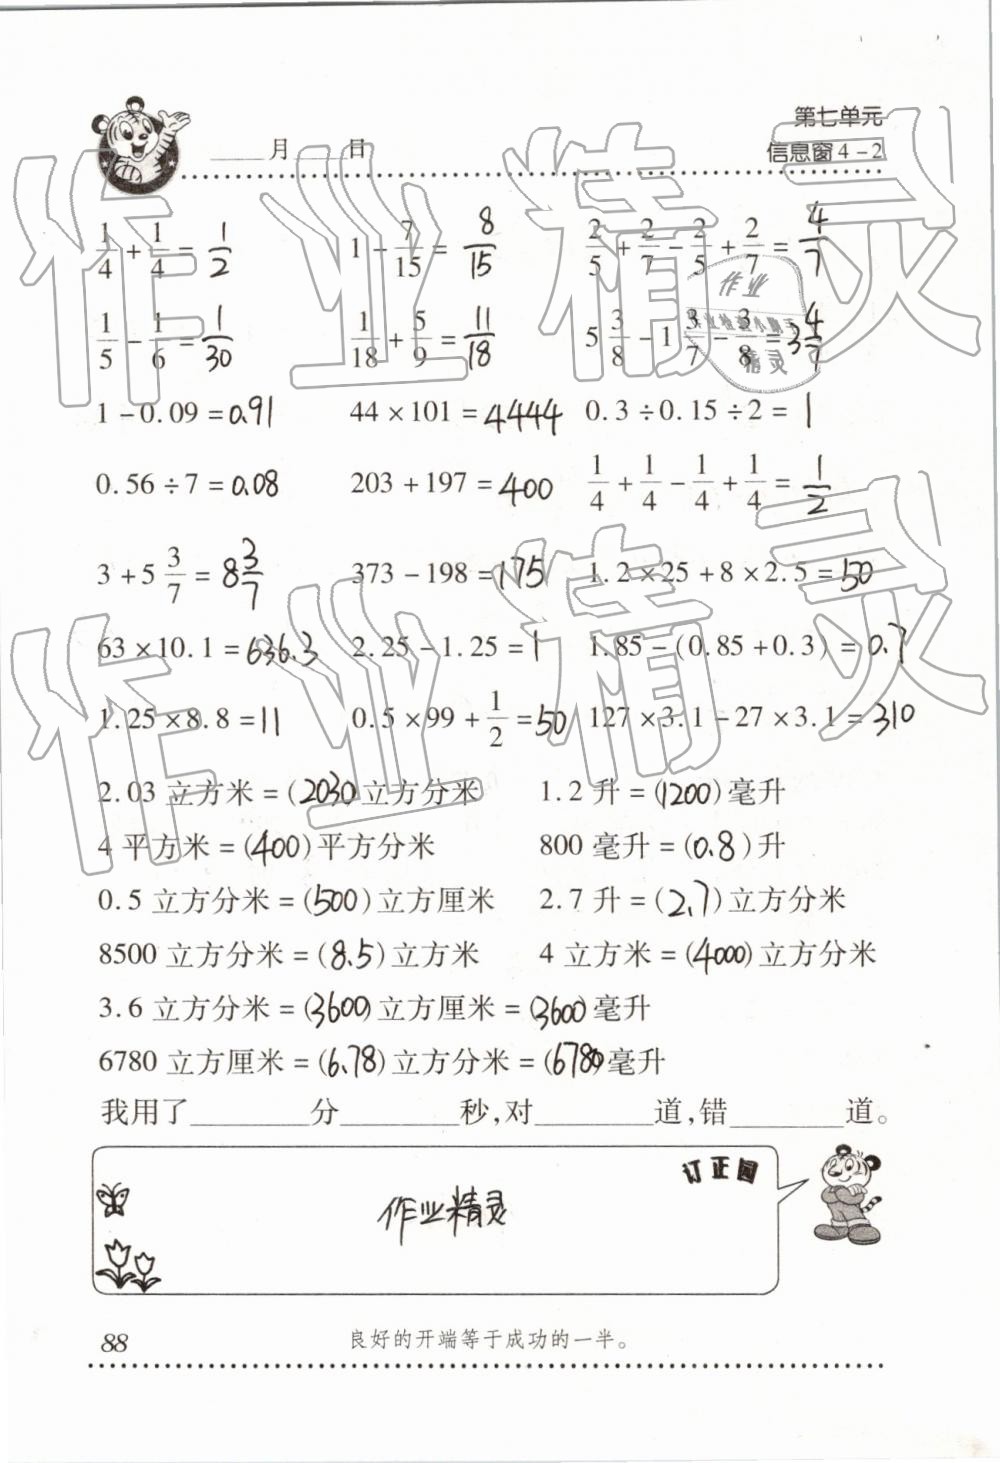 第七单元
____月____日 信息窗4-2
1/4 + 1/4 = 1/2 1 - 7/15 = 8/15 2/5 + 2/7 - 2/5 + 2/7 = 4/7
1/5 - 1/6 = 1/30 1/18 + 5/9 = 11/18 5 3/8 - 1 3/7 - 3/8 = 3 4/7
1 - 0.09 = 0.91 44 × 101 = 4444 0.3 ÷ 0.15 ÷ 2 = 1
0.56 ÷ 7 = 0.08 203 + 197 = 400 1/4 + 1/4 - 1/4 + 1/4 = 1/2
3 + 5 3/7 = 8 3/7 373 - 198 = 175 1.2 × 25 + 8 × 2.5 = 50
63 × 10.1 = 636.3 2.25 - 1.25 = 1 1.85 - (0.85 + 0.3) = 0.7
1.25 × 8.8 = 11 0.5 × 99 + 1/2 = 50 127 × 3.1 - 27 × 3.1 = 310
2.03 立方米 = (2030)立方分米 1.2 升 = (1200)毫升
4 平方米 = (400)平方分米 800 毫升 = (0.8)升
0.5 立方分米 = (500)立方厘米 2.7 升 = (2.7)立方分米
8500 立方分米 = (8.5)立方米 4 立方米 = (4000)立方分米
3.6 立方分米 = (3600)立方厘米 = (3600)毫升
6780 立方厘米 = (6.78)立方分米 = (6780)毫升
我用了____分____秒,对____道,错____道。
订正园
作业精灵
88 良好的开端等于成功的一半。
作业精灵
作业精灵
作业
作业检查小助手
精灵